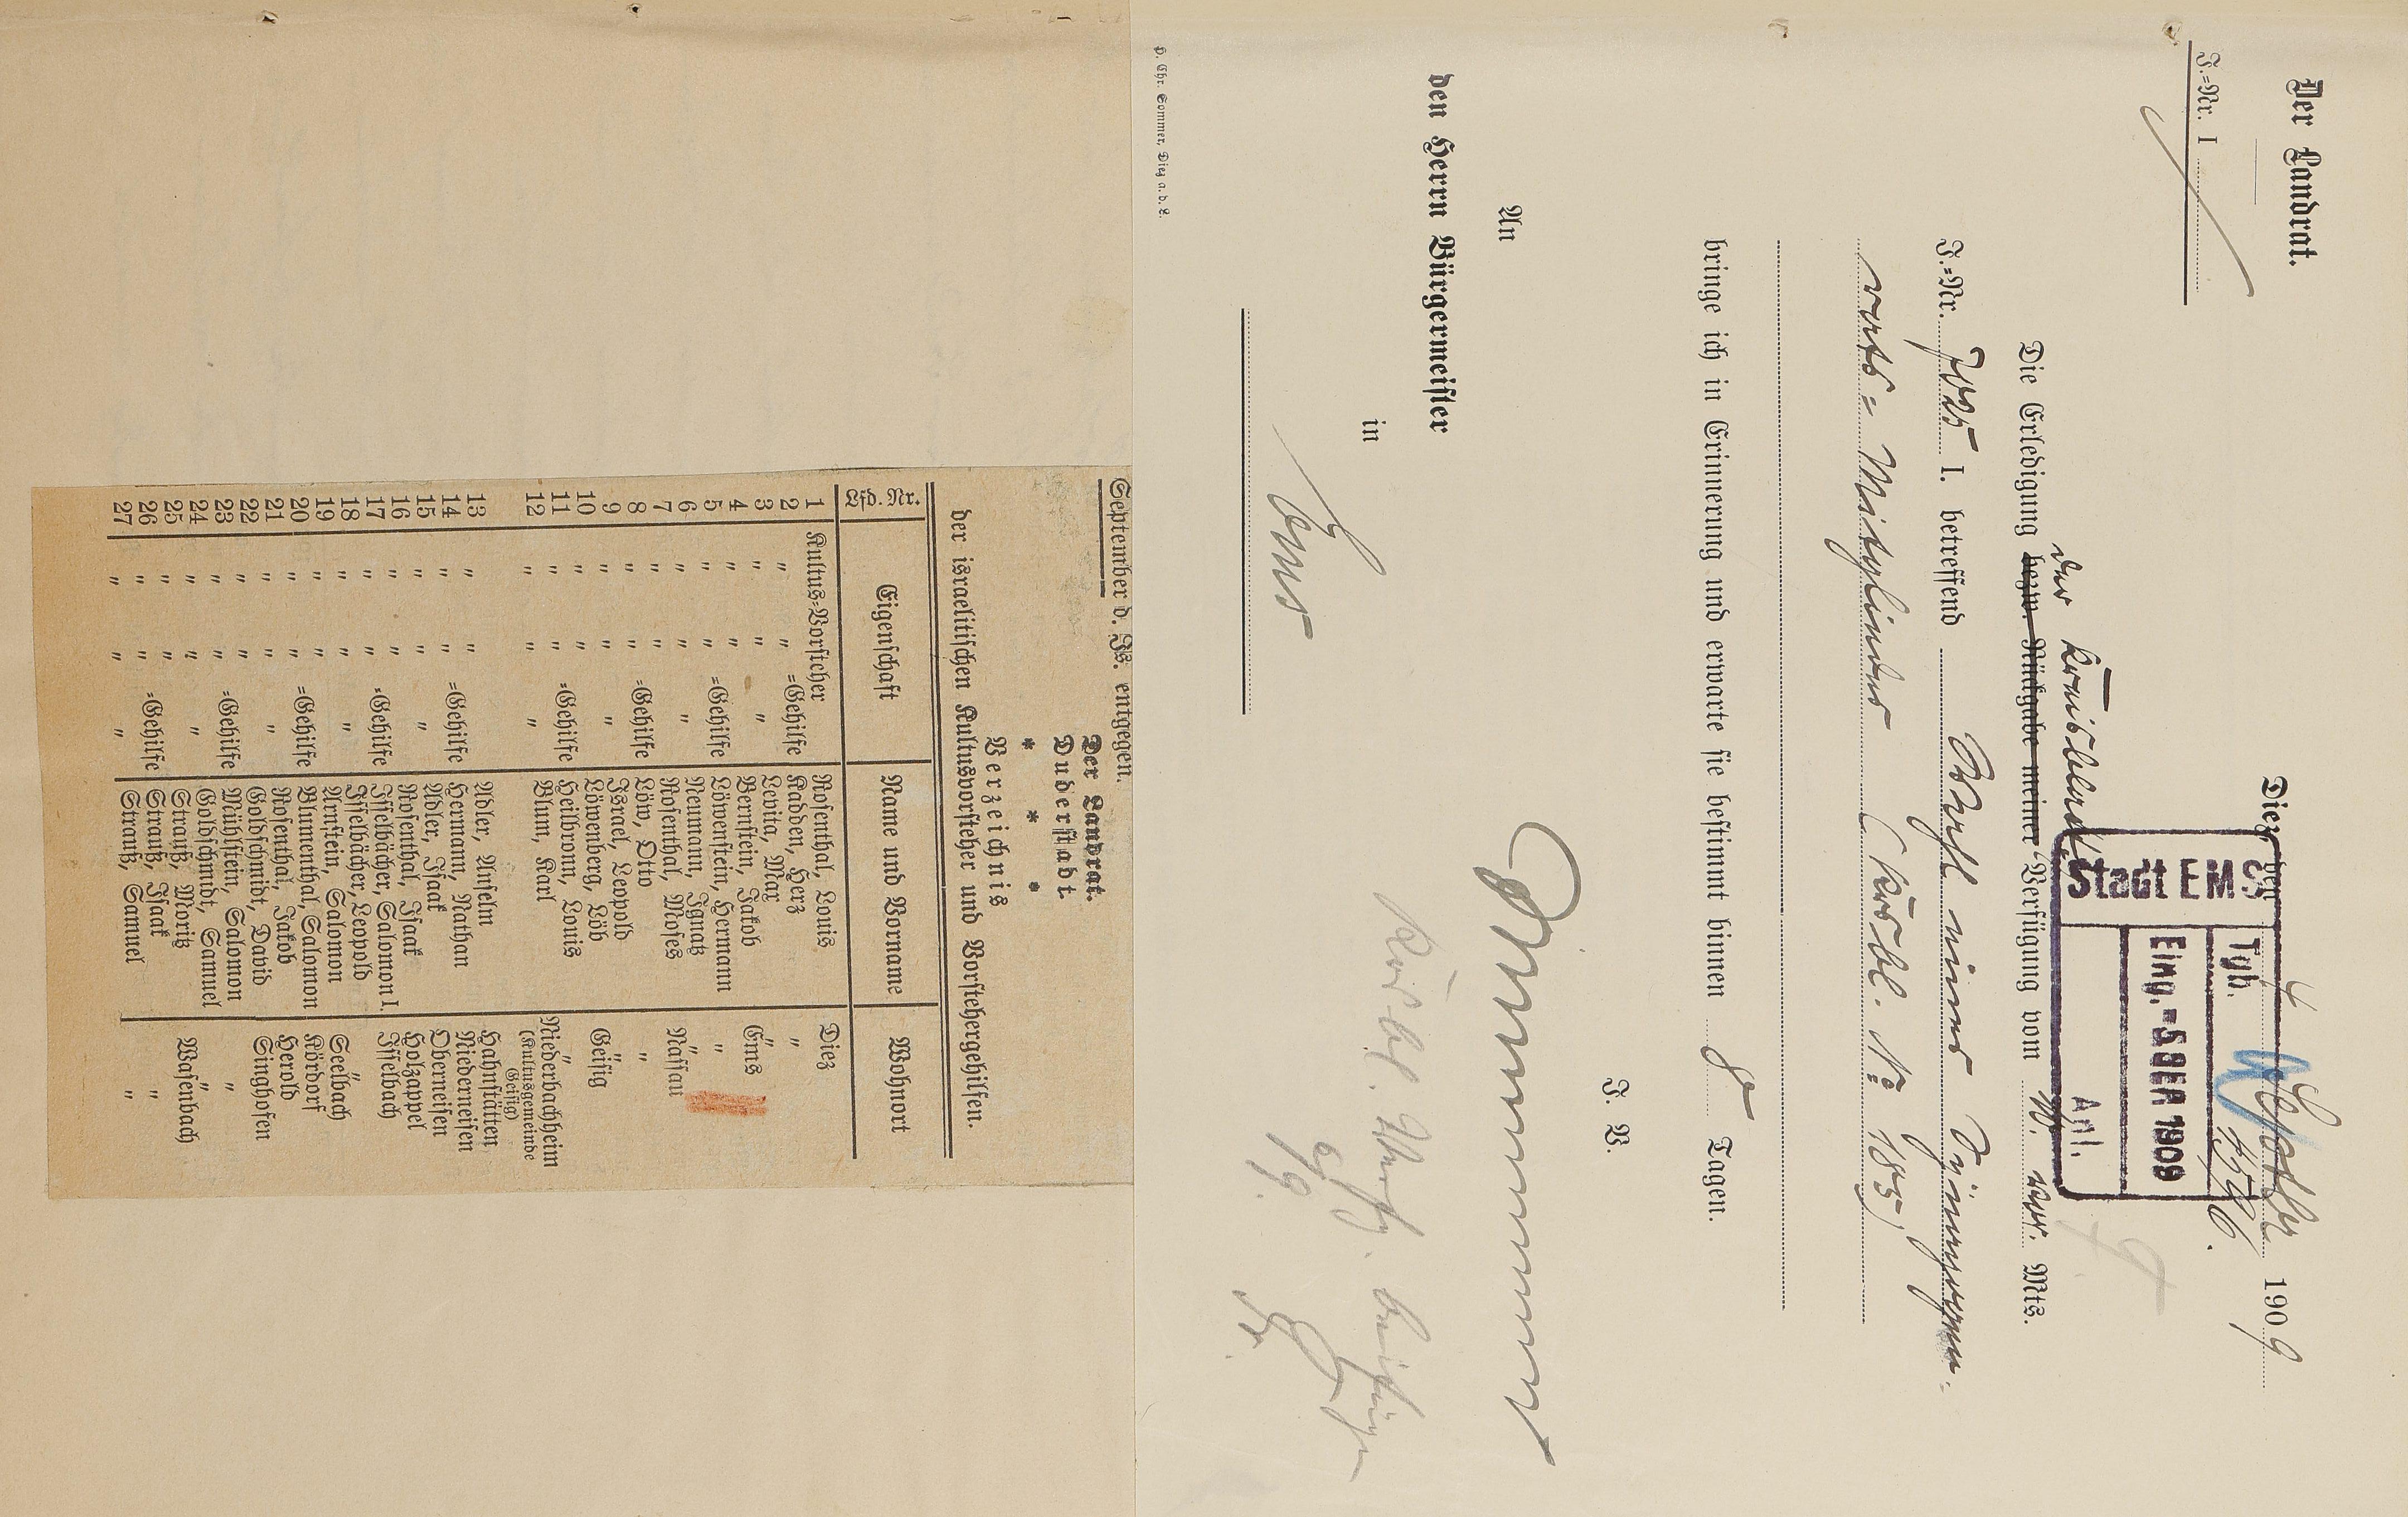 Der Landrat.
J.=Nr. I
Diez, den 4. Septbr 1909
Stadt EMS
Tgb.
Eing. - 6 SEP. 1909
Anl.
Die Erledigung bezw. Rückgabe meiner Verfügung vom 10. vor. Mts.
der Kreisblatt
J.=Nr. 7025 I. betreffend Wahl eines Synagogen=
rats=Mitgliedes (Krsbl. No 185)
bringe ich in Erinnerung und erwarte sie bestimmt binnen 8 Tagen.
J. V.
An
den Herrn Bürgermeister
in
Ems
6/9.
H. Chr. Sommer, Diez a. d. L.
September d. Js. entgegen.
Der Landrat.
Duderstadt.
* * *
Verzeichnis
der israelitischen Kultusvorsteher und Vorstehergehilfen.
Lfd. Nr. Eigenschaft Name und Vorname Wohnort
1 Kultus=Vorsteher Rosenthal, Louis Diez
2 " " =Gehilfe Kadden, Herz "
3 " " " Levita, Max "
4 " " Bernstein, Jakob Ems
5 " " =Gehilfe Löwenstein, Hermann "
6 " " " Neumann, Ignatz "
7 " " Rosenthal, Moses Nassau
8 " " =Gehilfe Löw, Otto "
9 " " " Israel, Leopold "
10 " " Löwenberg, Löb Geisig
11 " " =Gehilfe Heilbronn, Louis "
12 " " " Blum, Karl Niederbachheim
(Kultusgemeinde
Geisig)
13 " " Adler, Anselm Hahnstätten
14 " " =Gehilfe Hermann, Nathan Niederneisen
15 " " " Adler, Isaak Oberneisen
16 " " Rosenthal, Isaak Holzappel
17 " " =Gehilfe Isselbächer, Salomon I. Isselbach
18 " " " Isselbächer, Leopold "
19 " " Arnstein, Salomon Seelbach
20 " " =Gehilfe Blumenthal, Salomon Kördorf
21 " " " Rosenthal, Jakob Herold
22 " " Goldschmidt, David Singhofen
23 " " =Gehilfe Mühlstein, Salomon "
24 " " " Goldschmidt, Samuel "
25 " " Strauß, Moritz Wasenbach
26 " " =Gehilfe Strauß, Isaak "
27 " " " Strauß, Samuel "